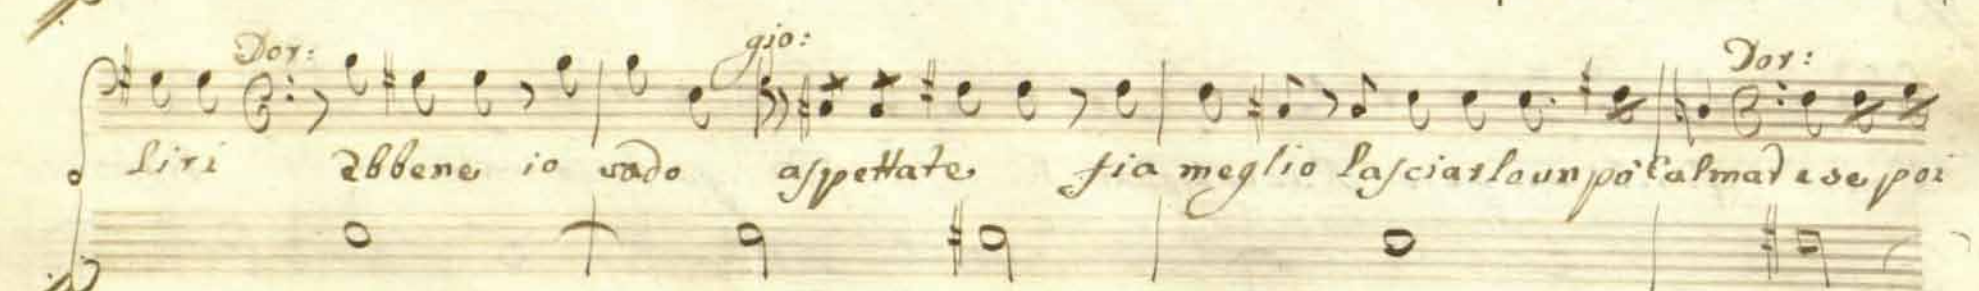 Dor: gio: Dor:
liri abbene io vado aspettate sia meglio lasciarlo un po' calmar e se poi